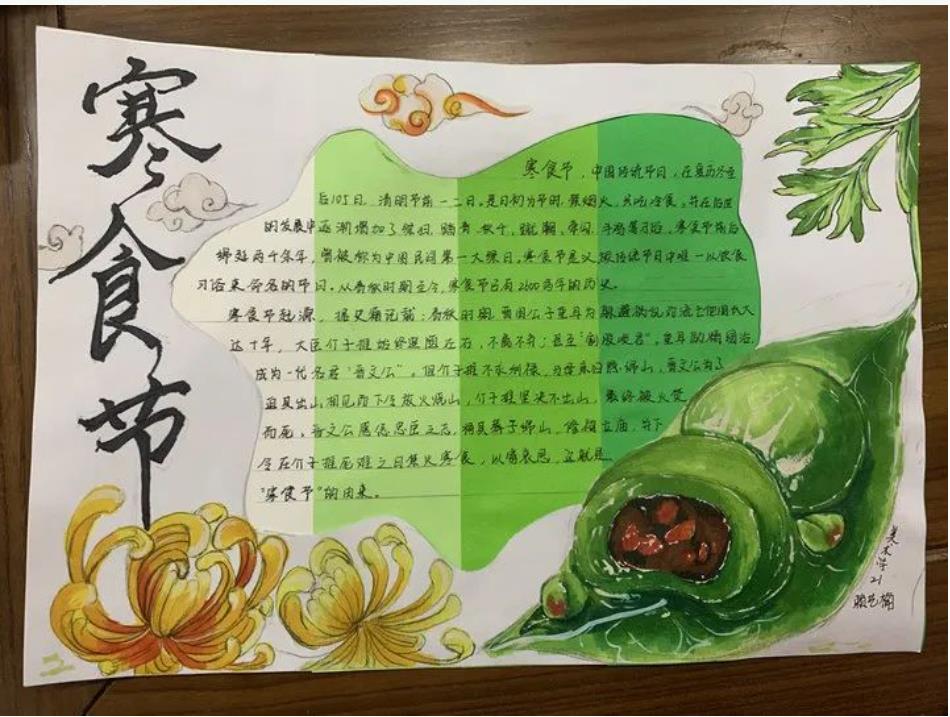 寒食节
寒食节，中国传统节日，在夏历冬至
后105日，清明节前一二日。是日初为节时，禁烟火，只吃冷食。并在后世
的发展中逐渐增加了祭扫、踏青、秋千、蹴鞠、牵勾、斗鸡等习俗，寒食节前后
绵延两千余年，曾被称为中国民间第一大祭日。寒食节是汉族传统节日中唯一以饮食
习俗来命名的节日。从春秋时期至今，寒食节已有2600多年的历史。
寒食节起源，据史籍记载：春秋时期，晋国公子重耳为躲避祸乱而流亡他国长大
达十年，大臣介子推始终追随左右，不离不弃；甚至“割股啖君”。重耳励精图治，
成为一代名君“晋文公”。但介子推不求利禄，与母亲归隐绵山，晋文公为了
迫其出山相见而下令放火烧山，介子推坚决不出山，最终被火焚
而死。晋文公感念忠臣之志，将其葬于绵山，修祠立庙，并下
令在介子推死难之日禁火寒食，以寄哀思，这就是
“寒食节”的由来。
美术学
21